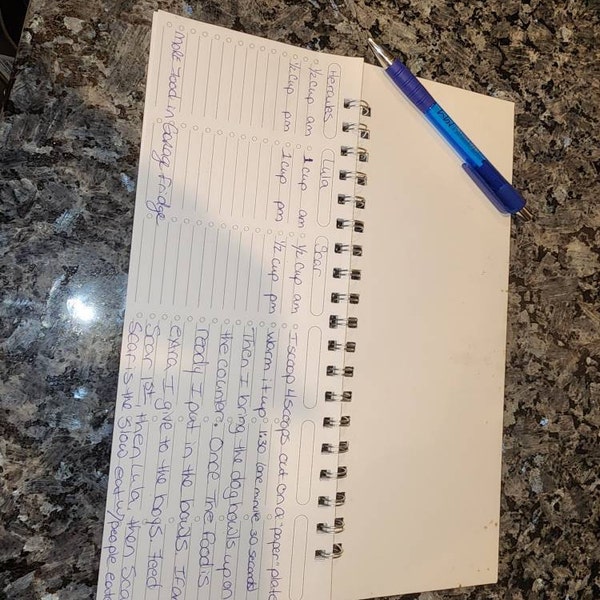 Hercules
½ cup am
½ cup pm
more Food in Garage Fridge
Lula
1 cup am
1 cup pm
Scar
½ cup am
½ cup pm
I scoop 4 scoops out on a paper plate
warm it up 1:30 (one minute 30 seconds)
Then I bring the dog bowls upon
the counter. Once the food is
ready I put in the bowls.
extra I give to the boys. Feed
Scar 1st, then Lula, then
Scar is the slow eat w/people